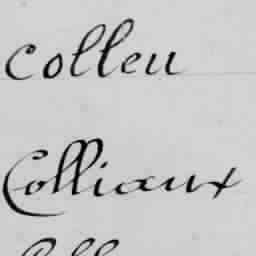 Colleu
Colliaux